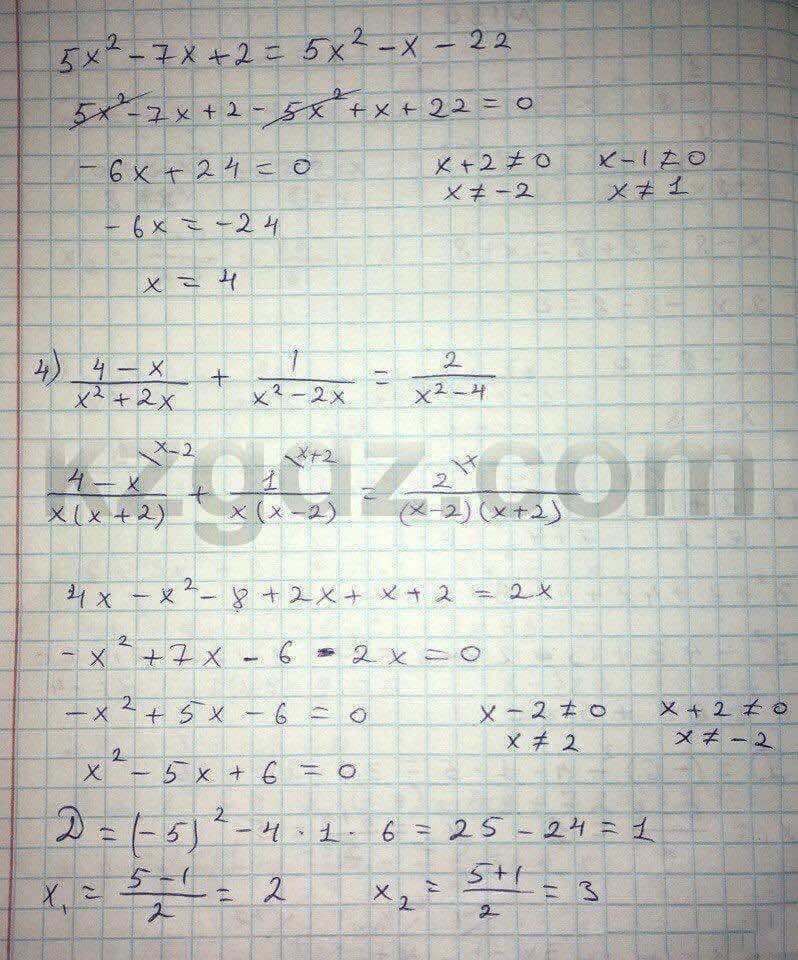 5x² - 7x + 2 = 5x² - x - 22
5x² - 7x + 2 - 5x² + x + 22 = 0
-6x + 24 = 0 x + 2 ≠ 0 x - 1 ≠ 0
-6x = -24 x ≠ -2 x ≠ 1
x = 4
4) (4 - x)/(x² + 2x) + 1/(x² - 2x) = 2/(x² - 4)
kzgdz.com
(4 - x)\x-2/(x(x + 2)) + 1\x+2/(x(x - 2)) = 2\x/((x - 2)(x + 2))
4x - x² - 8 + 2x + x + 2 = 2x
-x² + 7x - 6 - 2x = 0
-x² + 5x - 6 = 0 x - 2 ≠ 0 x + 2 ≠ 0
x ≠ 2 x ≠ -2
x² - 5x + 6 = 0
D = (-5)² - 4 · 1 · 6 = 25 - 24 = 1
x₁ = (5 - 1)/2 = 2 x₂ = (5 + 1)/2 = 3